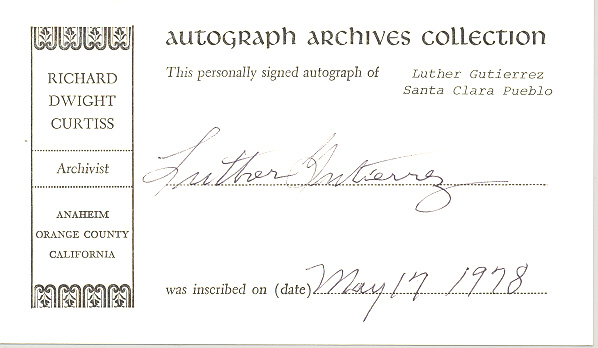 AUTOGRAPH ARCHIVES COLLECTION
RICHARD
DWIGHT
CURTISS
Archivist
ANAHEIM
ORANGE COUNTY
CALIFORNIA
This personally signed autograph of Luther Gutierrez
Santa Clara Pueblo
Luther Gutierrez
was inscribed on (date) May 17 1978